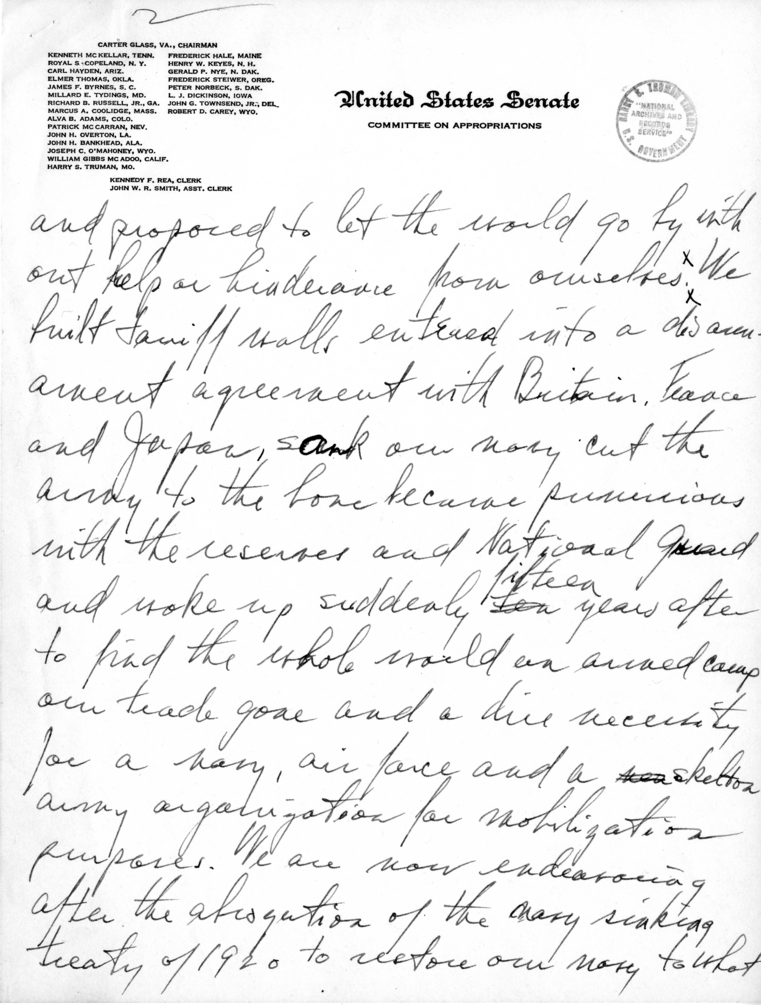 2
CARTER GLASS, VA., CHAIRMAN
KENNETH McKELLAR, TENN.
ROYAL S. COPELAND, N. Y.
CARL HAYDEN, ARIZ.
ELMER THOMAS, OKLA.
JAMES F. BYRNES, S. C.
MILLARD E. TYDINGS, MD.
RICHARD B. RUSSELL, JR., GA.
MARCUS A. COOLIDGE, MASS.
ALVA B. ADAMS, COLO.
PATRICK McCARRAN, NEV.
JOHN H. OVERTON, LA.
JOHN H. BANKHEAD, ALA.
JOSEPH C. O'MAHONEY, WYO.
WILLIAM GIBBS McADOO, CALIF.
HARRY S. TRUMAN, MO.
FREDERICK HALE, MAINE
HENRY W. KEYES, N. H.
GERALD P. NYE, N. DAK.
FREDERICK STEIWER, OREG.
PETER NORBECK, S. DAK.
L. J. DICKINSON, IOWA
JOHN G. TOWNSEND, JR., DEL.
ROBERT D. CAREY, WYO.
KENNEDY F. REA, CLERK
JOHN W. R. SMITH, ASST. CLERK
United States Senate
COMMITTEE ON APPROPRIATIONS
HARRY S. TRUMAN LIBRARY
"NATIONAL
ARCHIVES AND
RECORDS
SERVICE"
U.S. GOVERNMENT
and proposed to let the world go by with
out help or hinderance from ourselves. We
built tariff walls entered into a disarm-
ament agreement with Britain, France
and Japan, sank our navy cut the
army to the bone became penurious
with the reserves and National Guard
and woke up suddenly fifteen ten years after
to find the whole world an armed camp
our trade gone and a dire necessity
for a navy, air force and a skelton
army organization for mobilization
purposes. We are now endeavoring
after the abrogation of the navy sinking
treaty of 1920 to restore our navy to what